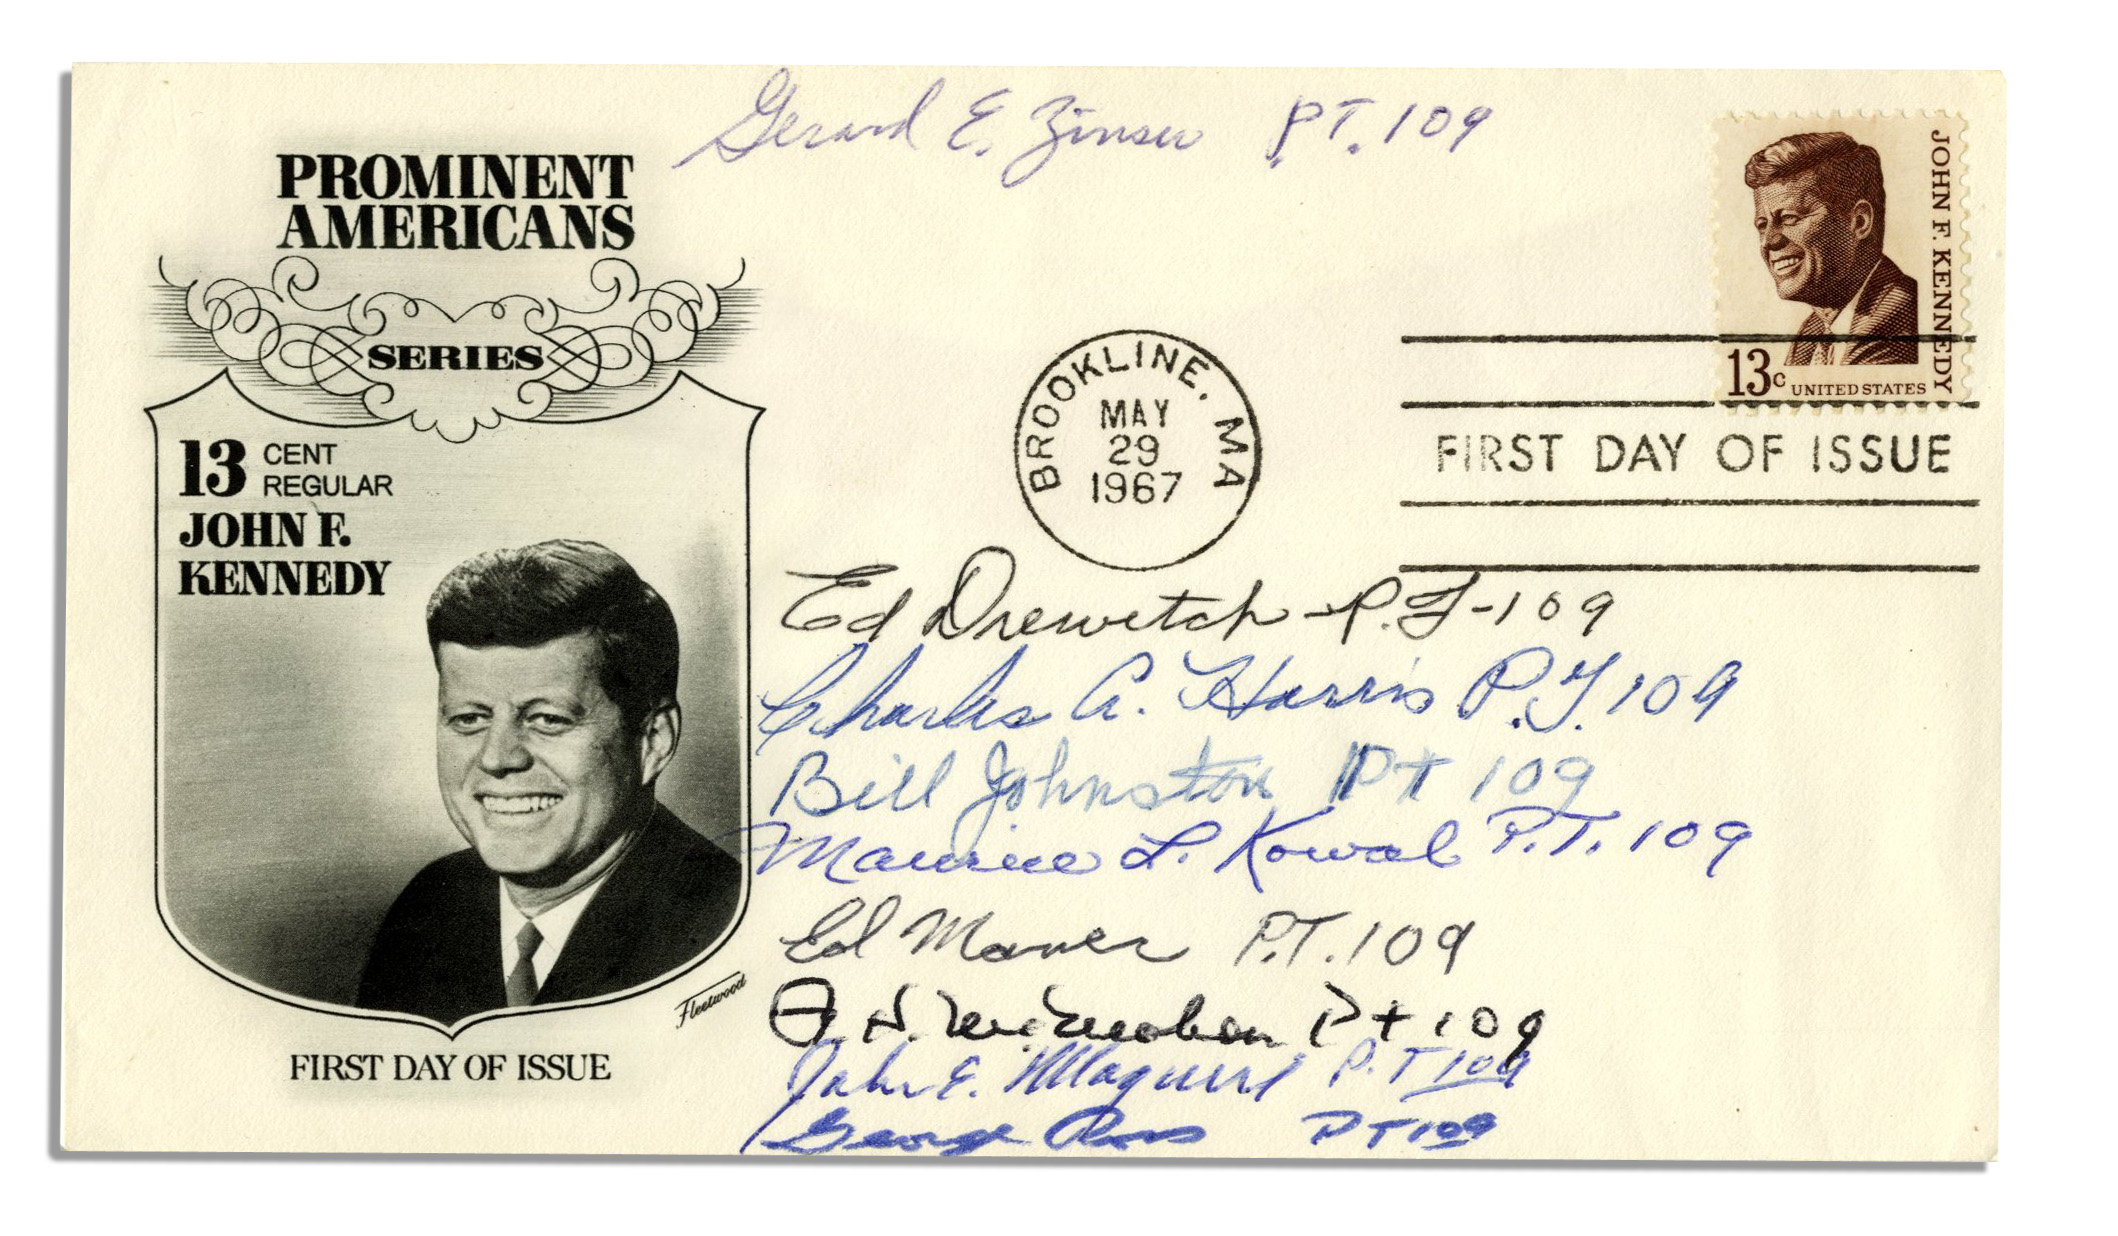 Gerard E. Zinser P.T. 109
PROMINENT
AMERICANS
SERIES
13 CENT
REGULAR
JOHN F.
KENNEDY
Fleetwood
FIRST DAY OF ISSUE
JOHN F. KENNEDY
13c UNITED STATES
BROOKLINE, MA
MAY
29
1967
FIRST DAY OF ISSUE
Ed Drewitch P.T-109
Charles A. Harris P.T. 109
Bill Johnston Pt 109
Maurice L. Kowal P.T. 109
Ed Mauer P.T. 109
P. H. McMahon Pt 109
John E. Maguire P.T 109
George Ross PT 109